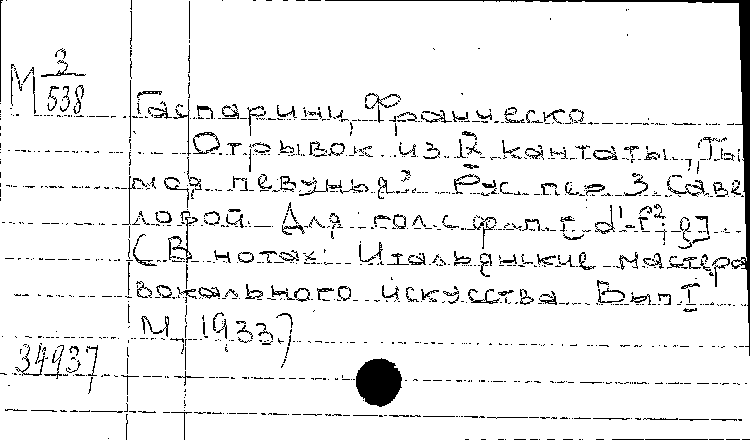 М 3/538
Гаспарини, Франческо
Отрывок из IX кантаты, Ты
моя певунья? Рус. пер. З. Саве
ловой. Для гол. с ф-п. [d¹-f²; g]
(В нотах: Итальянские мастера
вокального искусства Вып I
М, 1933.)
34937